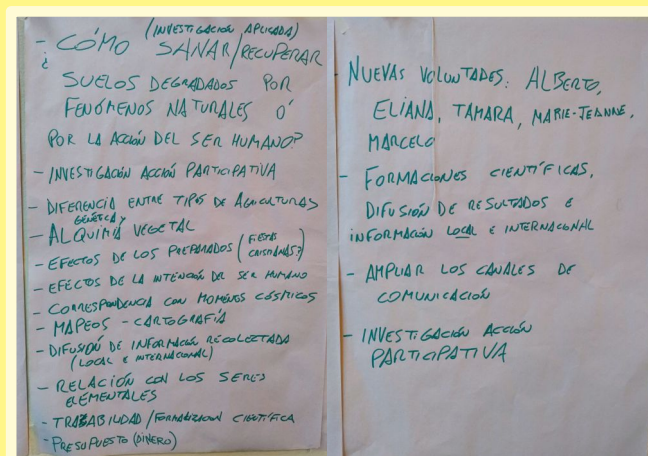 (INVESTIGACIÓN APLICADA)
- ¿CÓMO SANAR/RECUPERAR
SUELOS DEGRADADOS POR
FENÓMENOS NATURALES O
POR LA ACCIÓN DEL SER HUMANO?
- INVESTIGACIÓN ACCIÓN PARTICIPATIVA
- DIFERENCIA ENTRE TIPOS DE AGRICULTURAS
GENÉTICA Y
- ALQUIMIA VEGETAL
- EFECTOS DE LOS PREPARADOS (FIESTAS CRISTIANAS?)
- EFECTOS DE LA INTENCIÓN DEL SER HUMANO
- CORRESPONDENCIA CON MOMENTOS CÓSMICOS
- MAPEOS - CARTOGRAFÍA
- DIFUSIÓN DE INFORMACIÓN RECOLECTADA
(LOCAL E INTERNACIONAL)
- RELACIÓN CON LOS SERES
ELEMENTALES
- TRAZABILIDAD / FORMALIZACION CIENTÍFICA
- PRESUPUESTO (DINERO)
NUEVAS VOLUNTADES: ALBERTO,
ELIANA, TAMARA, MARIE-JEANNE,
MARCELO
- FORMACIONES CIENTÍFICAS,
DIFUSIÓN DE RESULTADOS E
INFORMACIÓN LOCAL E INTERNACIONAL
- AMPLIAR LOS CANALES DE
COMUNICACIÓN
- INVESTIGACIÓN ACCIÓN
PARTICIPATIVA